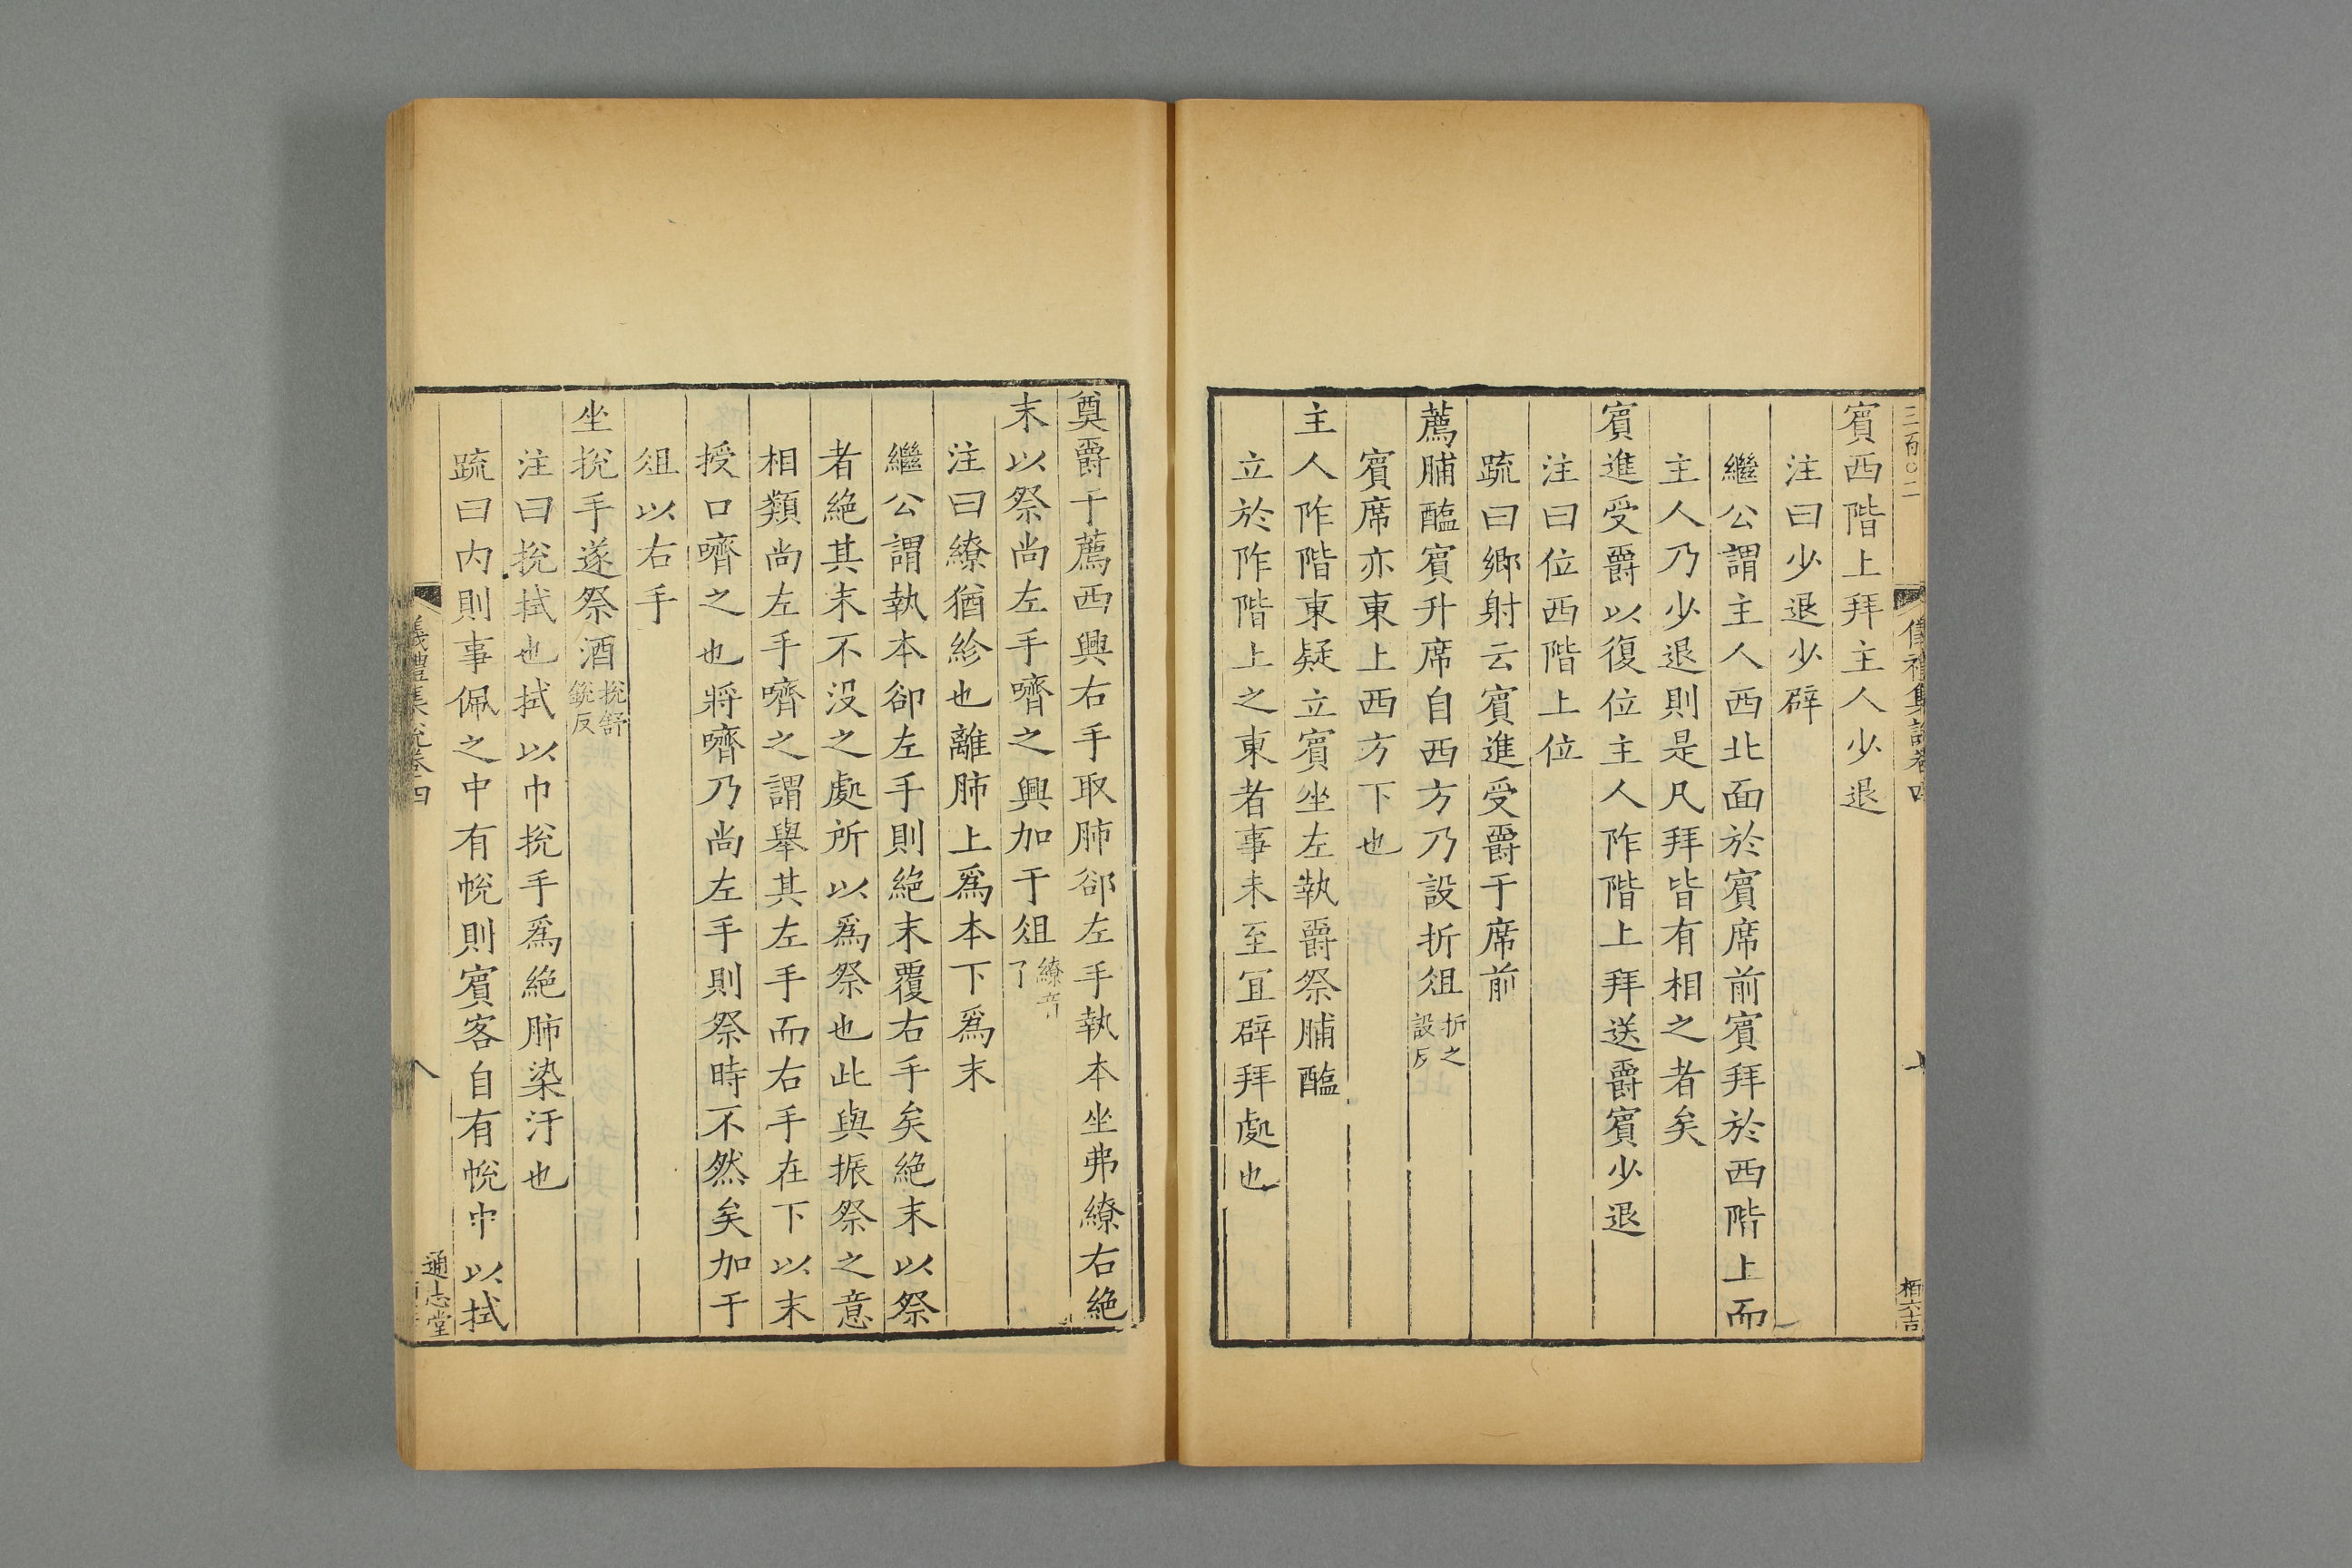 三百〇二
儀禮集說卷四
七
栢六吉
賓西階上拜主人少退
注曰少退少辟
繼公謂主人西北面於賓席前賓拜於西階上而
主人乃少退則是凡拜皆有相之者矣
賓進受爵以復位主人阼階上拜送爵賓少退
注曰位西階上位
疏曰鄉射云賓進受爵于席前
薦脯醢賓升席自西方乃設折俎折之設反
賓席亦東上西方下也
主人阼階東疑立賓坐左執爵祭脯醢
立於阼階上之東者事未至宜辟拜處也
奠爵于薦西興右手取肺郤左手執本坐弗繚右絶
末以祭尚左手嚌之興加于俎繚音了
注曰繚猶紾也離肺上爲本下爲末
繼公謂執本卻左手則絶末覆右手矣絶末以祭
者絶其末不没之處所以爲祭也此與振祭之意
相類尚左手嚌之謂舉其左手而右手在下以末
授口嚌之也將嚌乃尚左手則祭時不然矣加于
俎以右手
坐挩手遂祭酒挩舒銳反
注曰挩拭也拭以巾挩手爲絶肺染汙也
疏曰内則事佩之中有帨則賓客自有帨巾以拭
儀禮集說卷四
八
通志堂